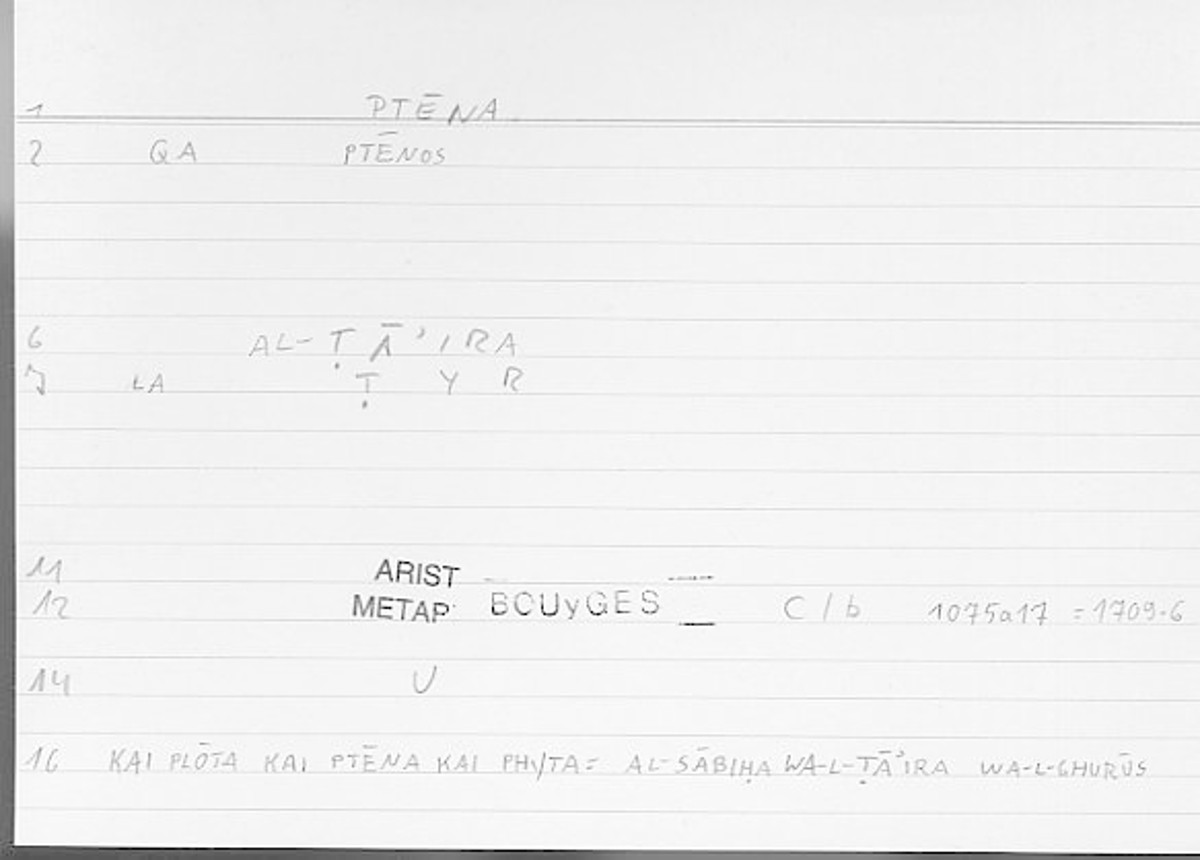 1 PTĒNA
2 QA PTĒNOS
6 AL-ṬĀ'IRA
7 LA Ṭ Y R
11 ARIST
12 METAP BOUyGES C/b 1075a17 = 1709.6
14 U
16 KAI PLŌTA KAI PTĒNA KAI PHYTA = AL-SĀBIḤA WA-L-ṬĀ'IRA WA-L-GHURŪS